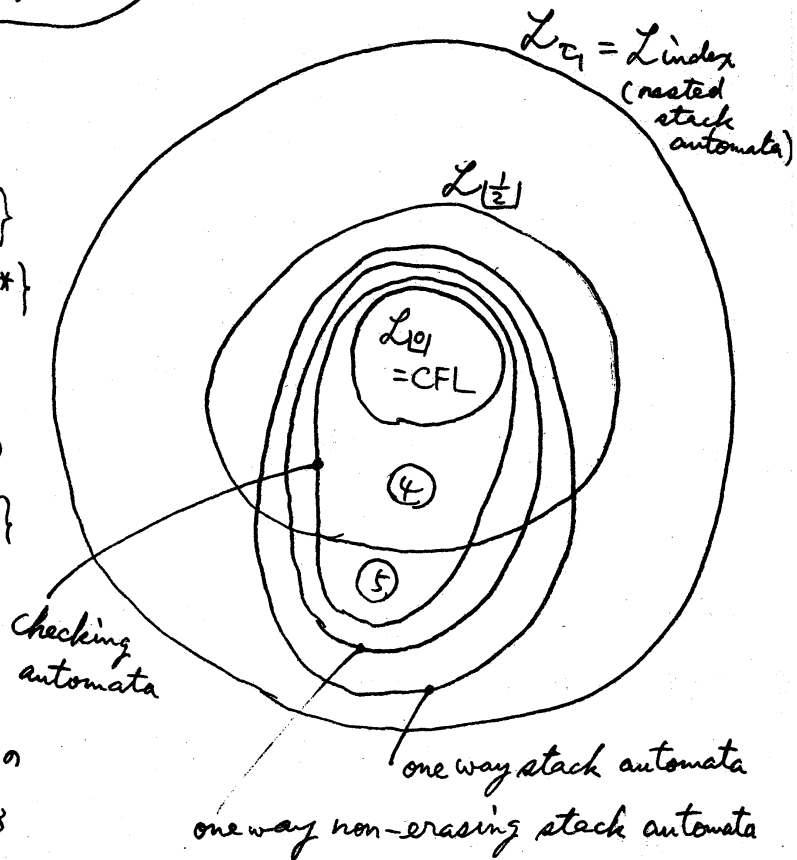 ℒ_τ₁ = ℒ index
(nested
stack
automata)
ℒ_[½]
}
*}
ℒ_[0]
=CFL
④
}
⑤
checking
automata
one way stack automata
one way non-erasing stack automata